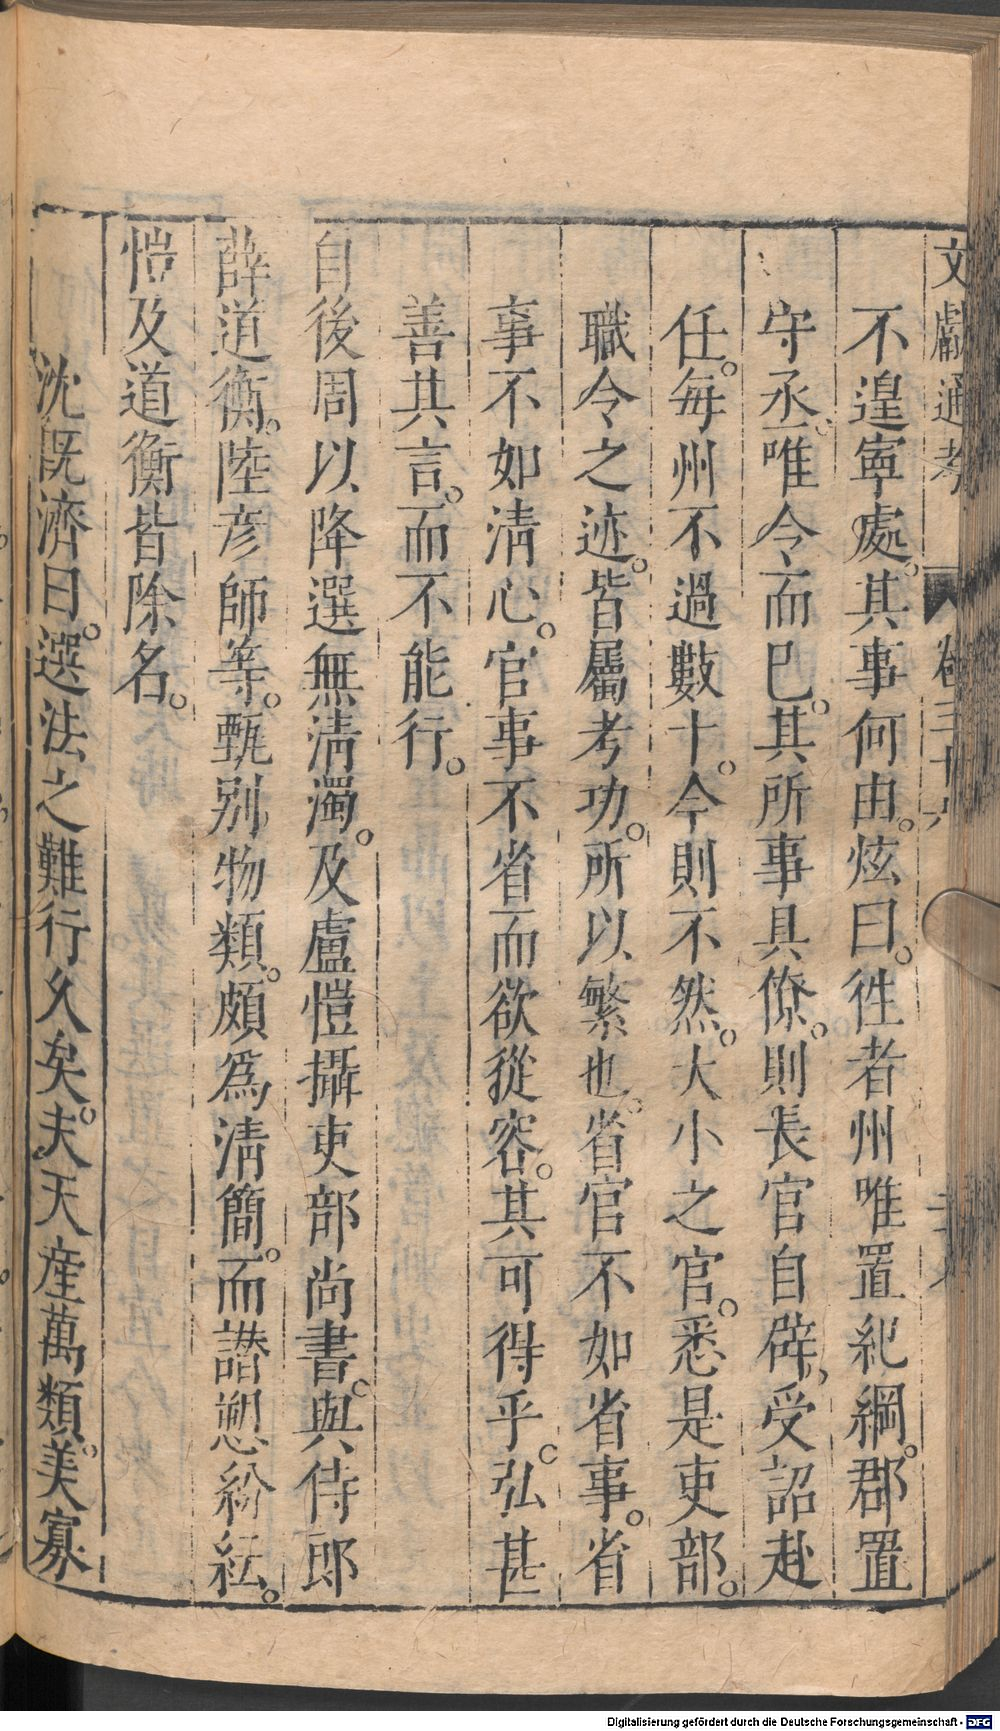 文獻通考 卷三十六
不遑寧處。其事何由。炫曰。徃者州唯置紀綱。郡置
守丞。唯令而巳。其所事具僚。則長官自辟受詔赴
任。每州不過數十。今則不然。大小之官。悉是吏部。
職令之迹。皆屬考功。所以繁也。省官不如省事。省
事不如淸心。官事不省而欲從容。其可得乎。弘甚
善其言。而不能行。
自後周以降選無淸濁。及盧愷攝吏部尚書。與侍郎
薛道衡。陸彦師等。甄别物類。頗爲淸簡。而譖愬紛紜。
愷及道衡皆除名。
沈旣濟曰。選法之難行久矣。夫天産萬類。美寡
Digitalisierung gefördert durch die Deutsche Forschungsgemeinschaft - DFG